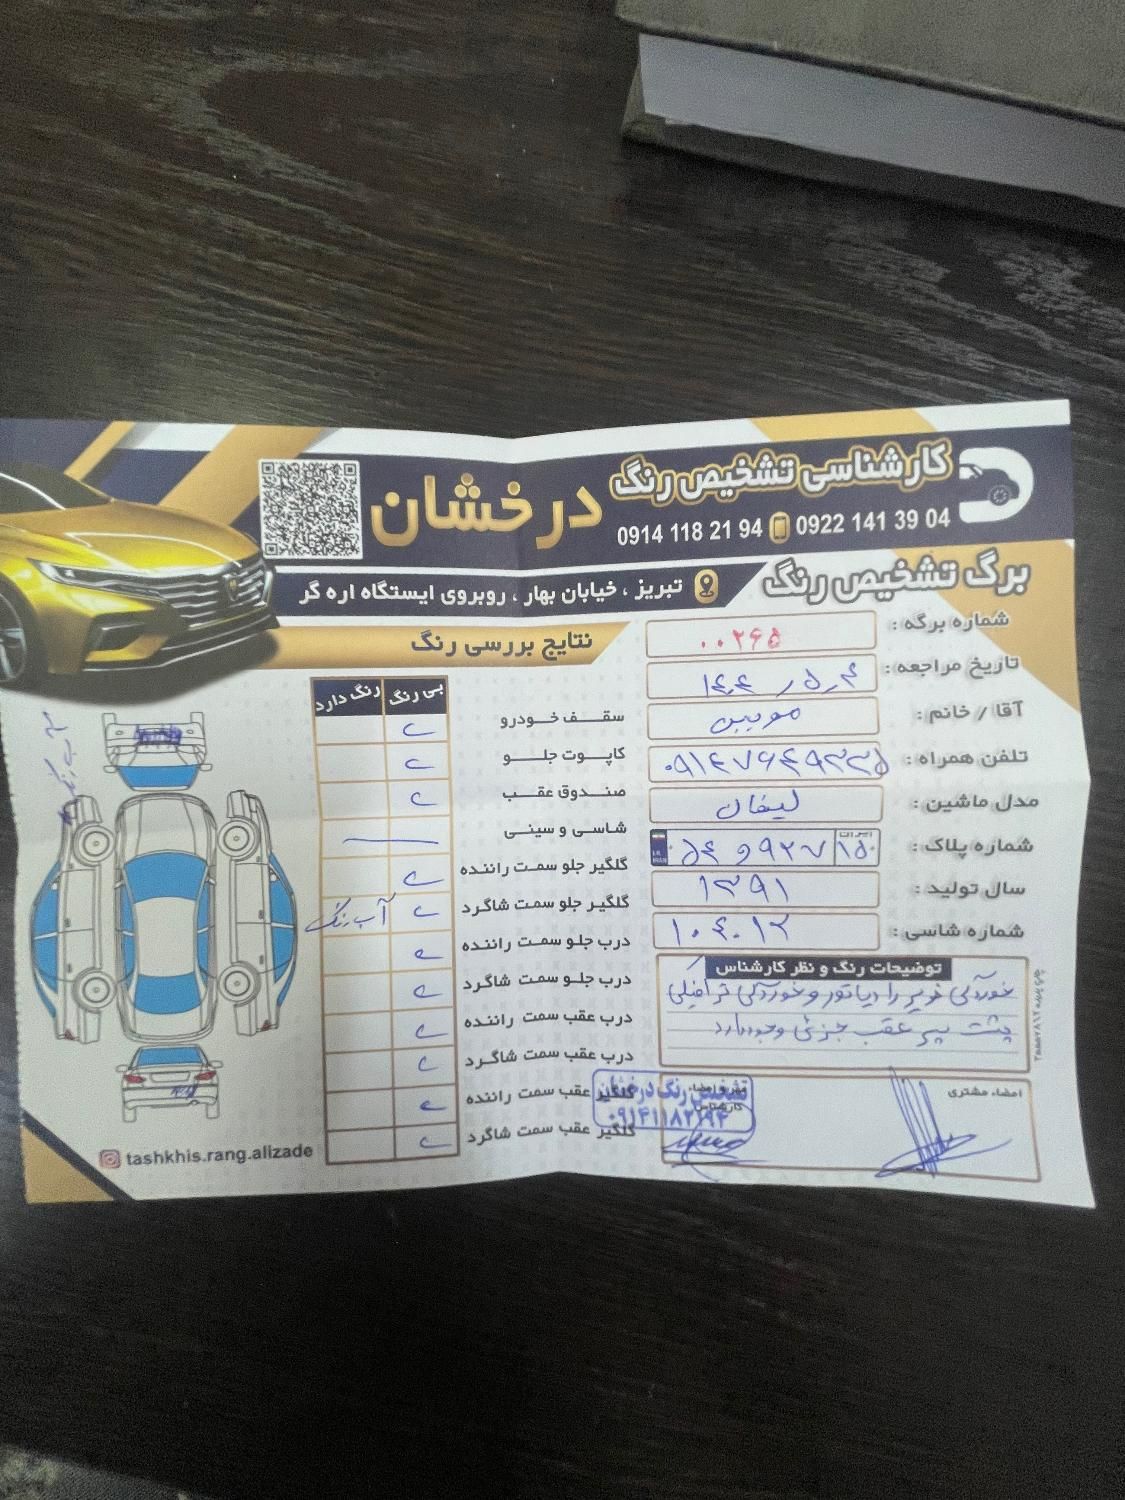 کارشناسی تشخیص رنگ
درخشان
0914 118 21 94 0922 141 39 04
تبریز ، خیابان بهار ، روبروی ایستگاه اره گر
برگ تشخیص رنگ
شماره برگه :
۰۰۲۶۵
تاریخ مراجعه :
آقا / خانم :
تلفن همراه :
مدل ماشین :
لیفان
شماره پلاک :
ایران
۱۵
سال تولید :
۱۳۹۱
شماره شاسی :
۱۰۴۰۱۳
توضیحات رنگ و نظر کارشناس
خوردگی زیر رادیاتور و خوردگی ترافیکی
پشت سپر عقب جزئی وجود دارد
امضاء مشتری
تشخیص رنگ درخشان
۰۹۱۴۱۱۸۲۱۹۴
نتایج بررسی رنگ
بی رنگ
رنگ دارد
سقف خودرو
کاپوت جلو
صندوق عقب
شاسی و سینی
گلگیر جلو سمت راننده
گلگیر جلو سمت شاگرد
آب رنگ
درب جلو سمت راننده
درب جلو سمت شاگرد
درب عقب سمت راننده
درب عقب سمت شاگرد
گلگیر عقب سمت راننده
گلگیر عقب سمت شاگرد
آب رنگ
tashkhis.rang.alizade